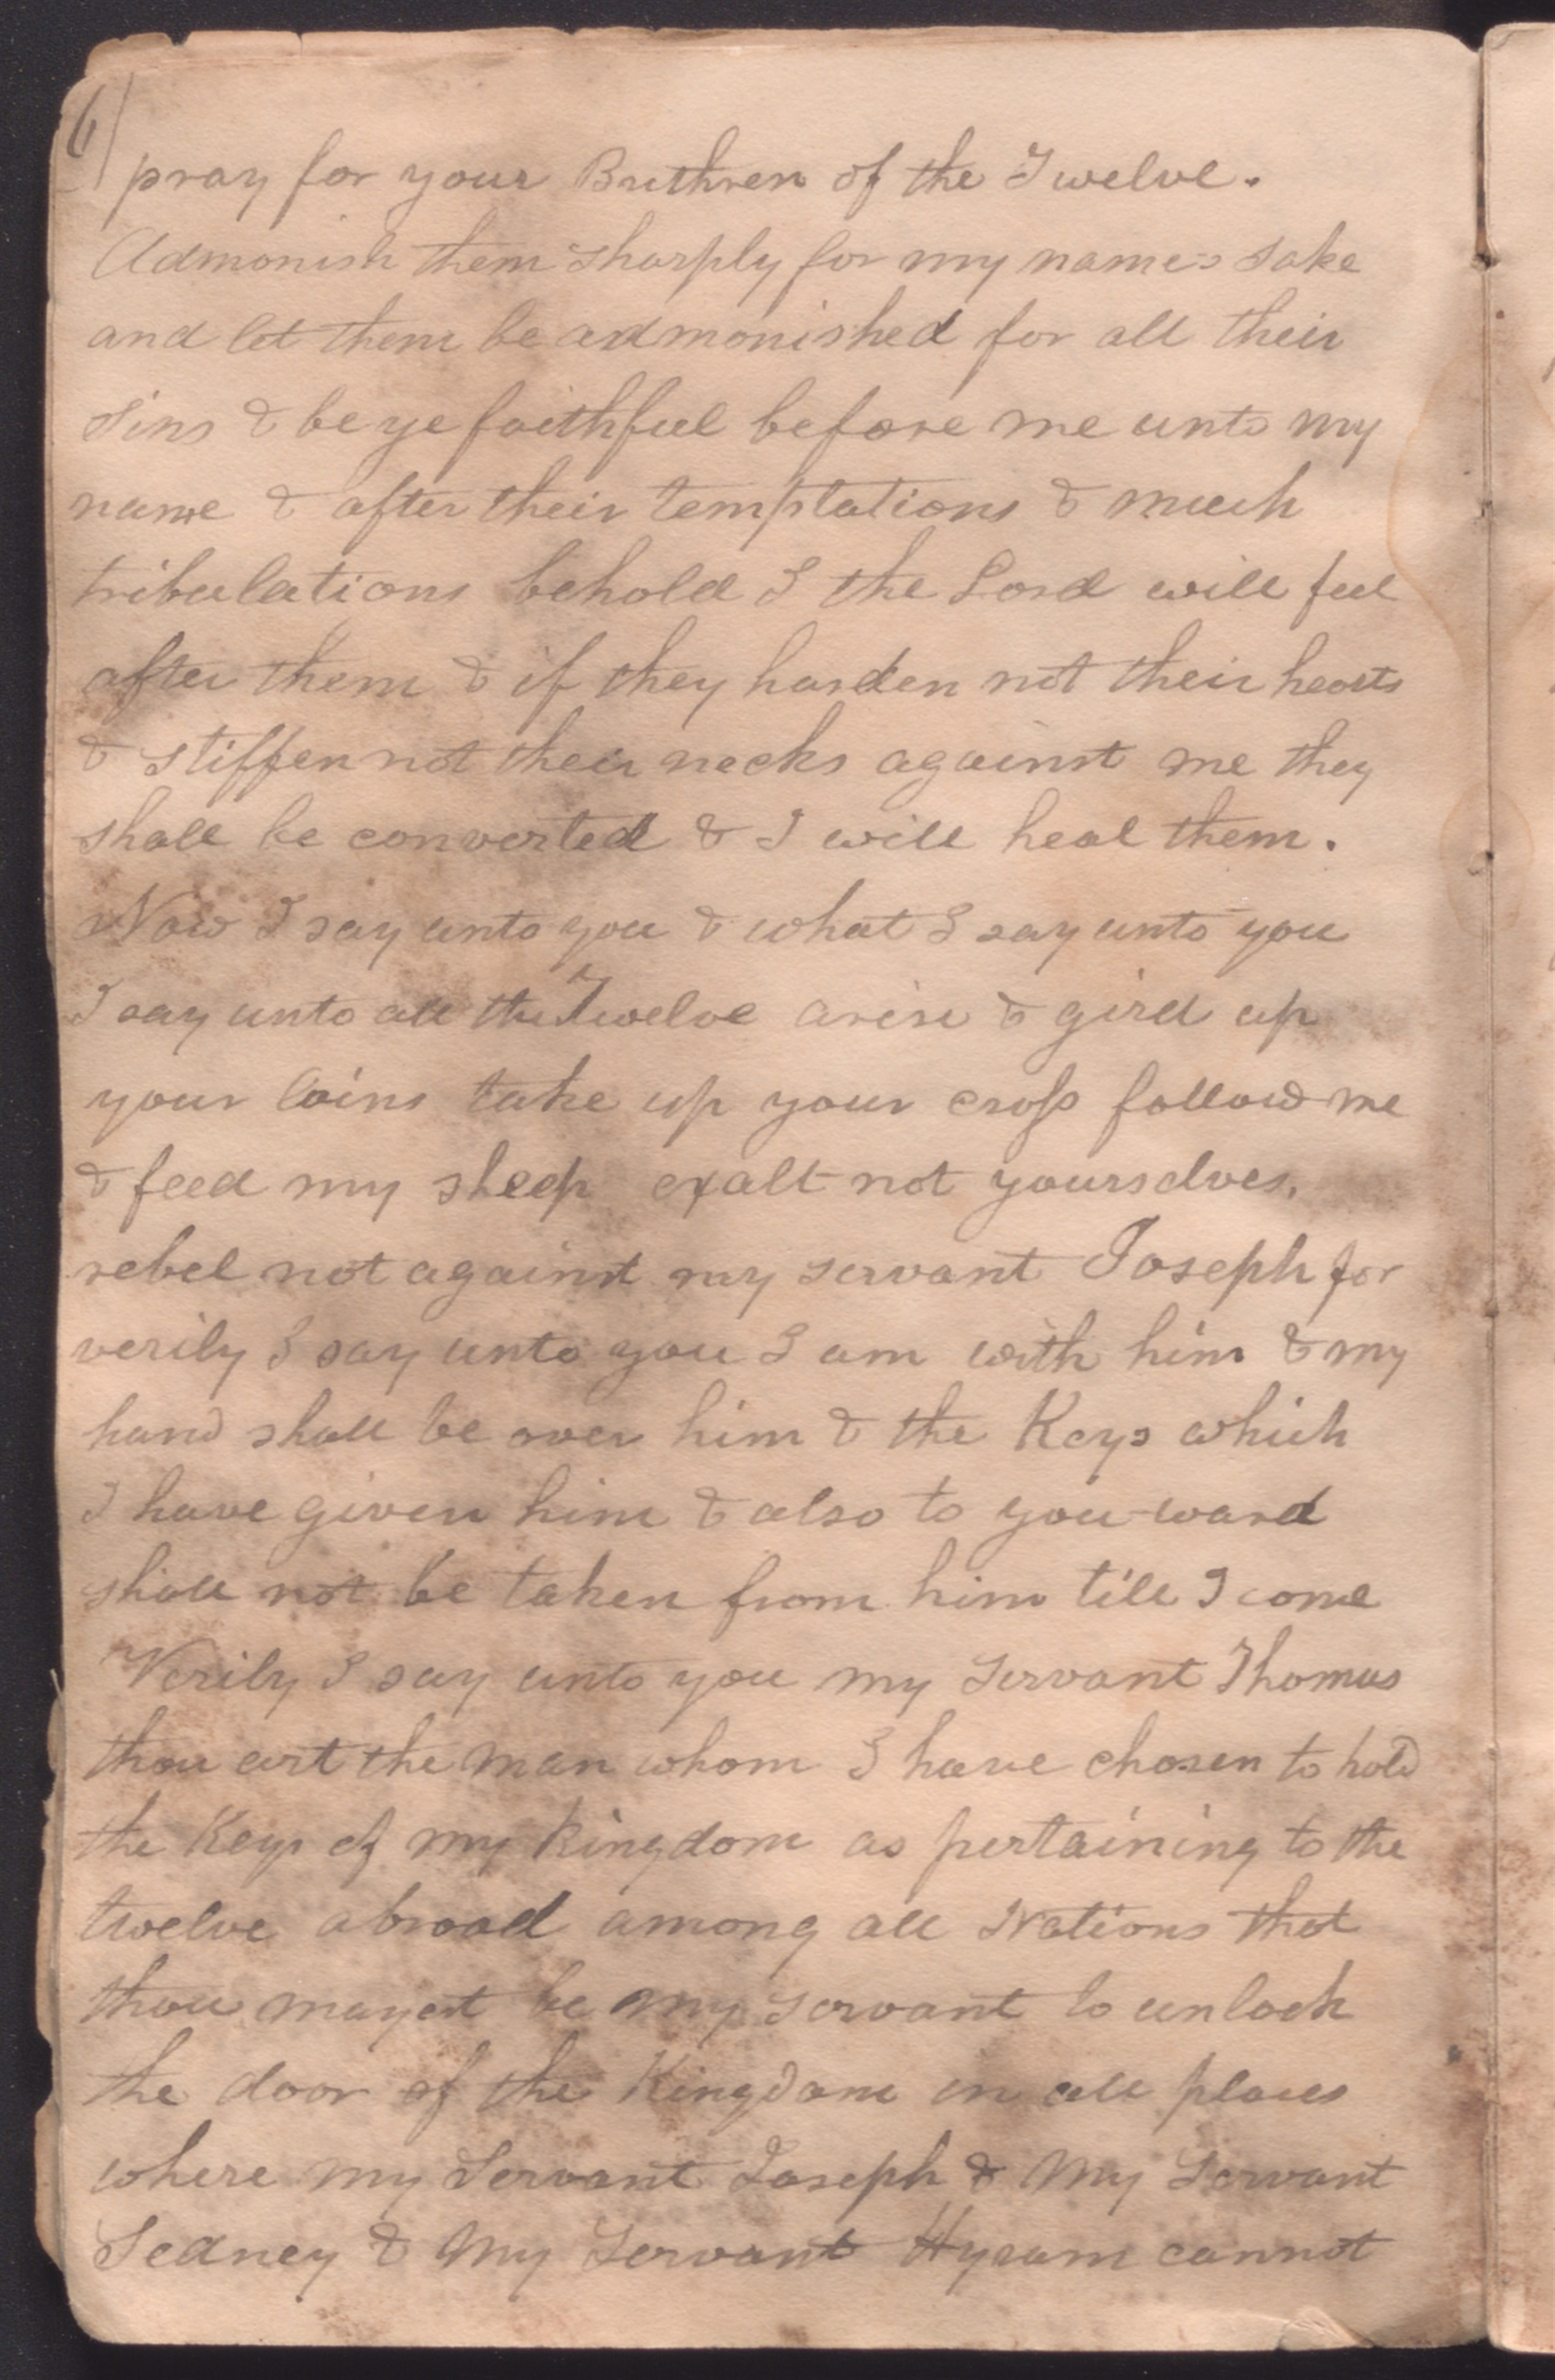 6
pray for your Brethren of the Twelve.
Admonish them sharply for my names sake
and let them be admonished for all their
sins & be ye faithful before me unto my
name & after their temptations & much
tribulations behold I the Lord will feel
after them & if they harden not their hearts
& stiffen not their necks against me they
shall be converted & I will heal them.
Now I say unto you & what I say unto you
I say unto all the Twelve arise & gird up
your loins take up your cross follow me
& feed my sheep exalt not yourselves,
rebel not against my servant Joseph for
verily I say unto you I am with him & my
hand shall be over him & the Keys which
I have given him & also to you-ward
shall not be taken from him till I come
Verily I say unto you my Servant Thomas
thou art the man whom I have chosen to hold
the Keys of my kingdom as pertaining to the
twelve abroad among all Nations that
thou mayest be my servant to unlock
the door of the Kingdom in all places
where my Servant Joseph & my Servant
Sedney & my Servant Hyrum cannot